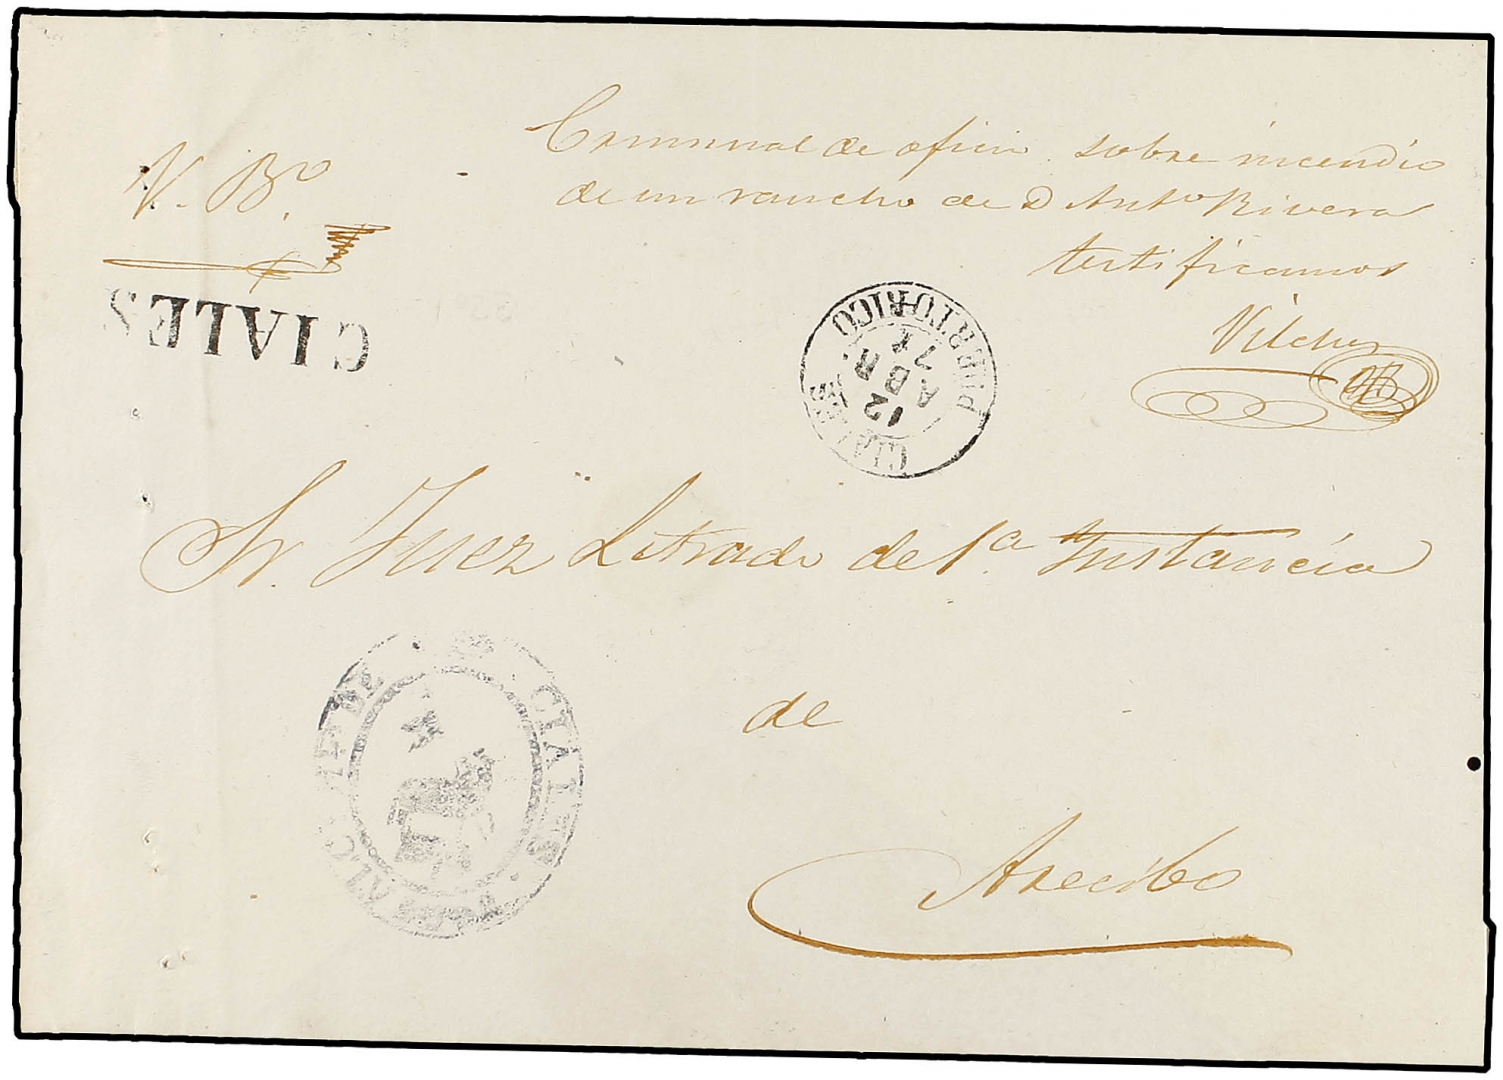 Criminal de oficio sobre incendio
de un rancho de D Anto Rivera
V. Bº.
testificamos
CIALES
PUERTO-RICO
12
ABR.
CIALES
Vilches
Sr. Juez Letrado de 1ª. Instancia
ALCALDIA DE CIALES
de
Arecibo